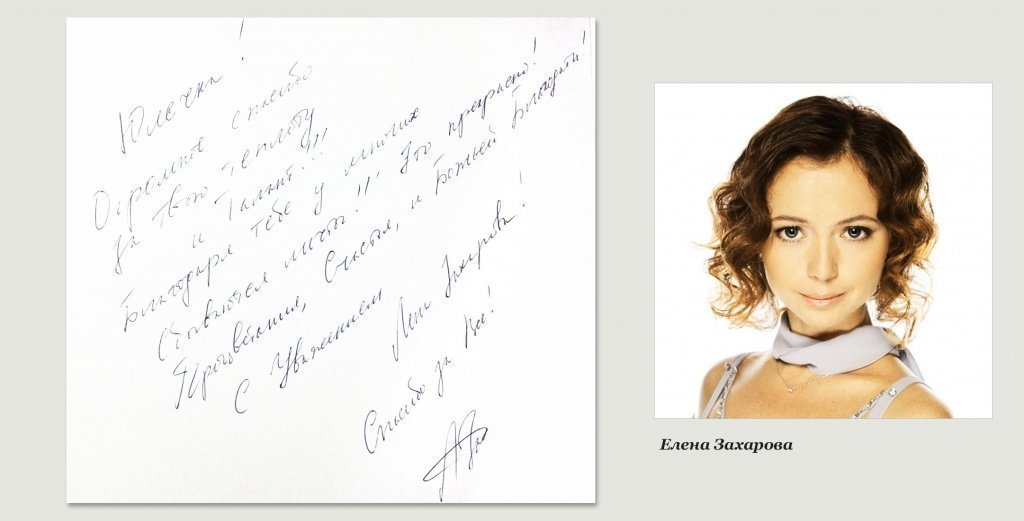 Юлечка!
Огромное спасибо
за твою теплоту
и талант!!!
Благодаря тебе у многих
сбываются мечты!!! Это прекрасно!
Процветания, Счастья, и Божьей Благодати!
С Уважением Лена Захарова!
Спасибо за Все!
Елена Захарова